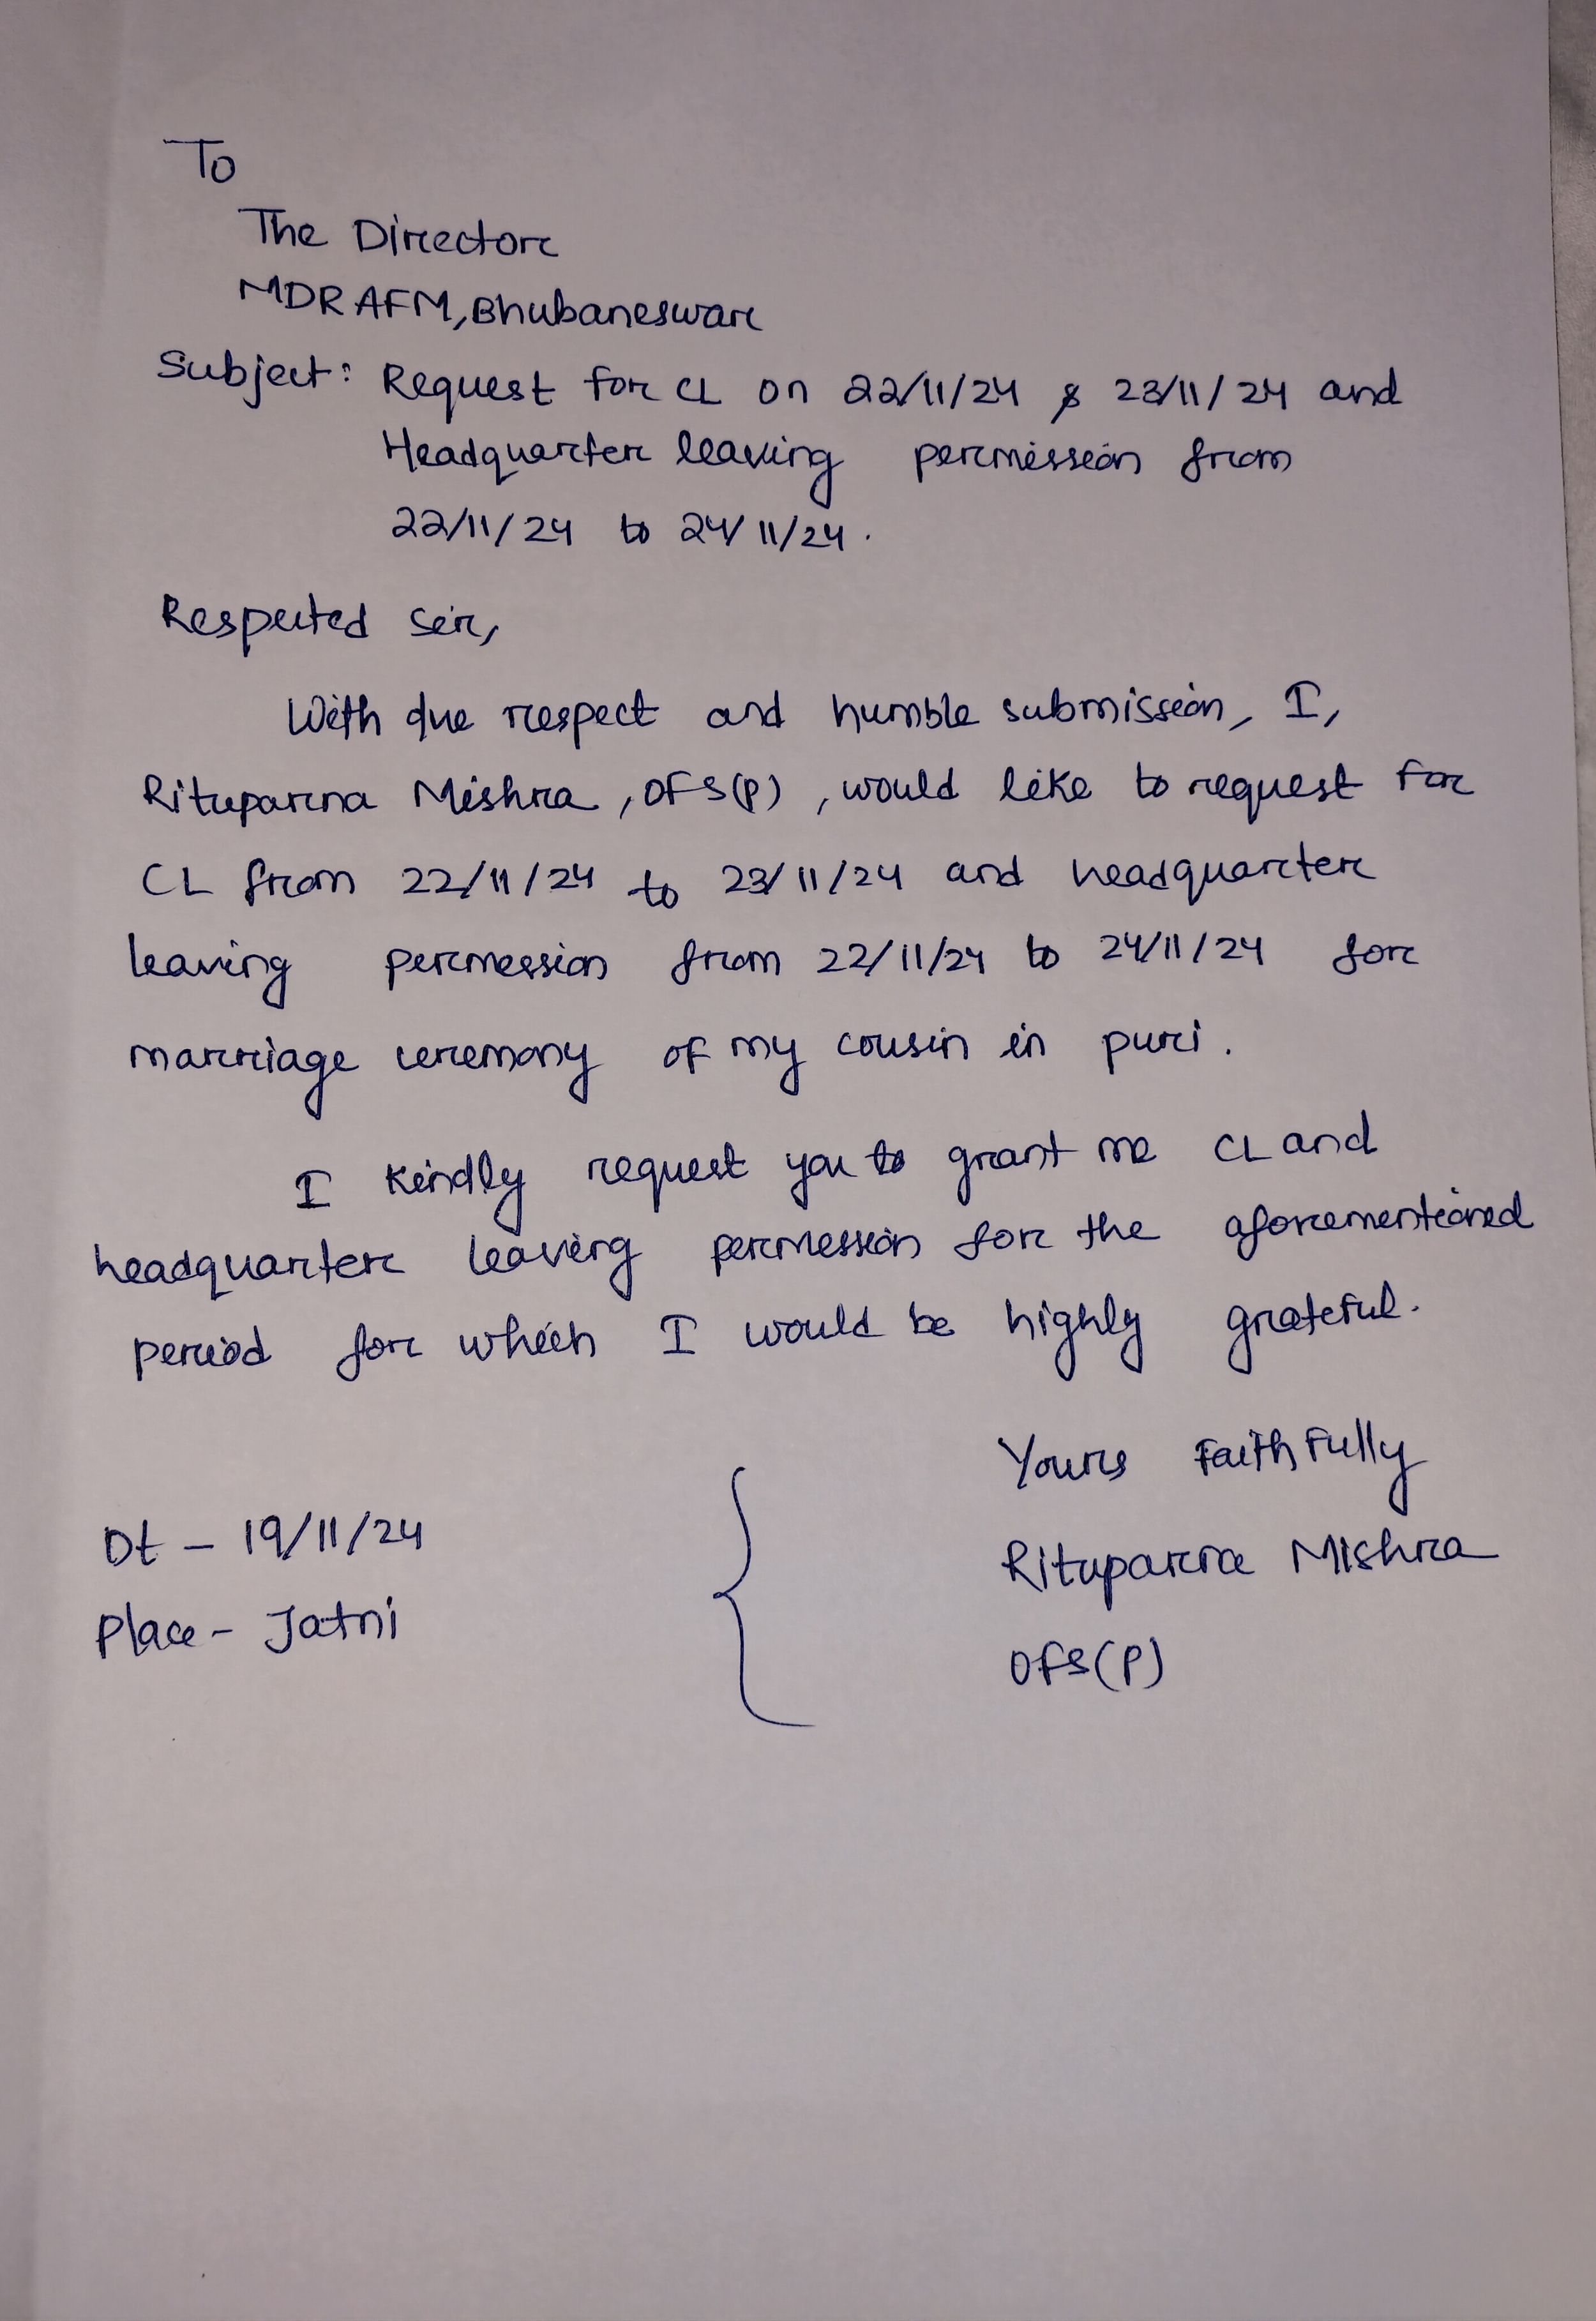 To
The Director
MDRAFM, Bhubaneswar
Subject: Request for CL on 22/11/24 & 23/11/24 and
Headquarter leaving permission from
22/11/24 to 24/11/24.
Respected Sir,
With due respect and humble submission, I,
Rituparna Mishra, OFS(P), would like to request for
CL from 22/11/24 to 23/11/24 and headquarter
leaving permession from 22/11/24 to 24/11/24 for
marriage ceremony of my cousin in puri.
I kindly request you to grant me CL and
headquarter leaving permession for the aforementioned
period for which I would be highly grateful.
Yours Faithfully
Dt - 19/11/24
Rituparna Mishra
Place - Jatni
OFS(P)